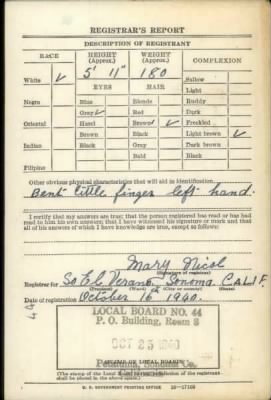 REGISTRAR'S REPORT
DESCRIPTION OF REGISTRANT
RACE HEIGHT (Approx.) WEIGHT (Approx.) COMPLEXION
White ✓ 5' 11" 180 Sallow
EYES HAIR Light
Negro Blue Blonde Ruddy
Gray ✓ Red Dark
Oriental Hazel Brown ✓ Freckled
Brown Black Light brown ✓
Indian Black Gray Dark brown
Bald Black
Filipino
Other obvious physical characteristics that will aid in identification
Bent little finger left hand.
I certify that my answers are true; that the person registered has read or has had
read to him his own answers; that I have witnessed his signature or mark and that
all of his answers of which I have knowledge are true, except as follows:
Mary Nicol
(Signature of registrar)
Registrar for So El Verano Sonoma CALIF.
(Precinct) (Ward) (City or county) (State)
Date of registration October 16 1940.
LOCAL BOARD NO. 44
P. O. Building, Room 8
OCT 23 1940
Petaluma, Sonoma Co.
(STAMP OF LOCAL BOARD)
(The stamp of the Local Board having jurisdiction of the registrant
shall be placed in the above space.)
U. S. GOVERNMENT PRINTING OFFICE 16—17105